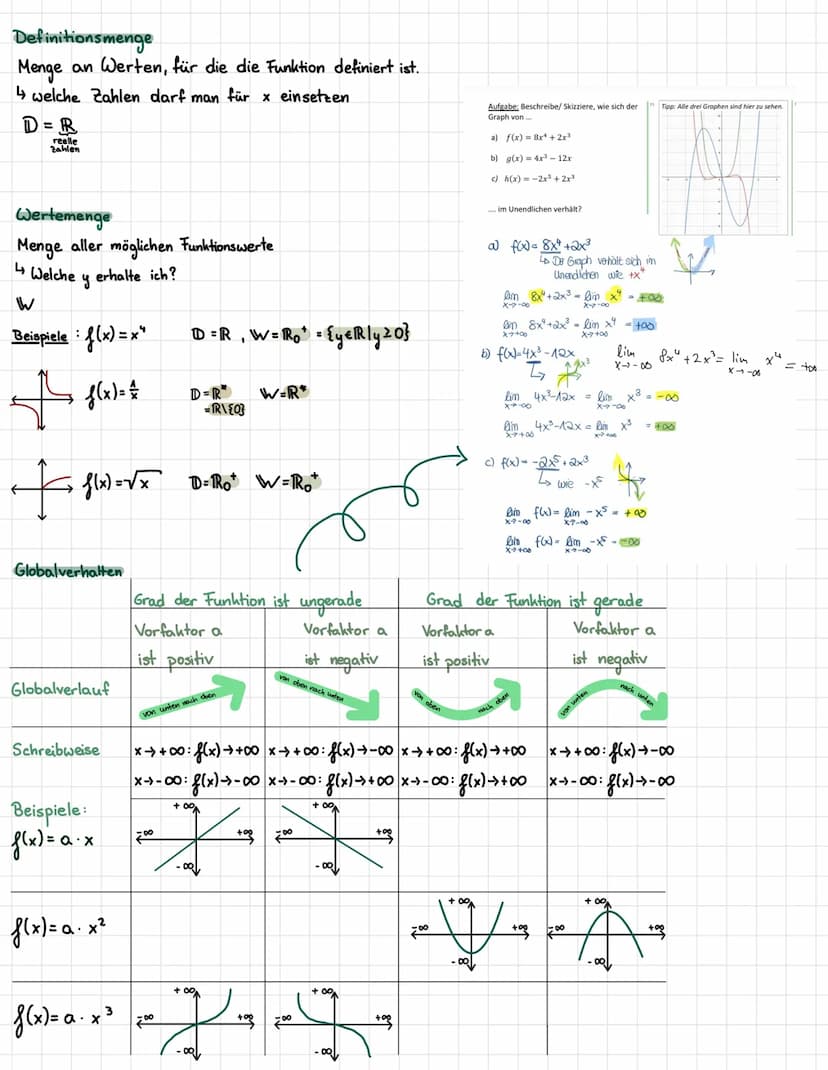 Definitionsmenge
Menge an Werten, für die die Funktion definiert ist.
↳ welche Zahlen darf man für x einsetzen
D = ℝ
reelle
zahlen
Wertemenge
Menge aller möglichen Funktionswerte
↳ Welche y erhalte ich?
W
Beispiele : f(x) = x⁴ D = ℝ , W = ℝ₀⁺ = {y∈ℝ | y ≥ 0}
f(x) = 1/x D = ℝ* W = ℝ*
= ℝ\{0}
f(x) = √x D = ℝ₀⁺ W = ℝ₀⁺
Aufgabe: Beschreibe/ Skizziere, wie sich der
Graph von ...
a) f(x) = 8x⁴ + 2x³
b) g(x) = 4x³ − 12x
c) h(x) = −2x⁵ + 2x³
.... im Unendlichen verhält?
Tipp: Alle drei Graphen sind hier zu sehen.
a) f(x) = 8x⁴ + 2x³
↳ Der Graph verhält sich im
Unendlichen wie +x⁴
lim x→-∞ 8x⁴ + 2x³ = lim x→-∞ x⁴ = +∞
lim x→+∞ 8x⁴ + 2x³ = lim x→+∞ x⁴ = +∞
b) f(x) = 4x³ - 12x
lim x→-∞ 8x⁴ + 2x³ = lim x→-∞ x⁴ = +∞
lim x→-∞ 4x³ - 12x = lim x→-∞ x³ = -∞
lim x→+∞ 4x³ - 12x = lim x→+∞ x³ = +∞
c) f(x) = -2x⁵ + 2x³
↳ wie -x⁵
lim x→-∞ f(x) = lim x→-∞ -x⁵ = +∞
lim x→+∞ f(x) = lim -x⁵ = -∞
Globalverhalten
Grad der Funktion ist ungerade Grad der Funktion ist gerade
Vorfaktor a Vorfaktor a Vorfaktor a Vorfaktor a
ist positiv ist negativ ist positiv ist negativ
Globalverlauf
von unten nach oben
von oben nach unten
von oben nach oben
von unten nach unten
Schreibweise x→+∞: f(x)→+∞ x→+∞: f(x)→-∞ x→+∞: f(x)→+∞ x→+∞: f(x)→-∞
x→-∞: f(x)→-∞ x→-∞: f(x)→+∞ x→-∞: f(x)→+∞ x→-∞: f(x)→-∞
Beispiele:
f(x) = a · x
+∞ +∞
-∞ +∞ -∞ +∞
-∞ -∞
f(x) = a · x²
+∞ +∞
-∞ +∞ -∞ +∞
-∞ -∞
f(x) = a · x³
+∞ +∞
-∞ +∞ -∞ +∞
-∞ -∞